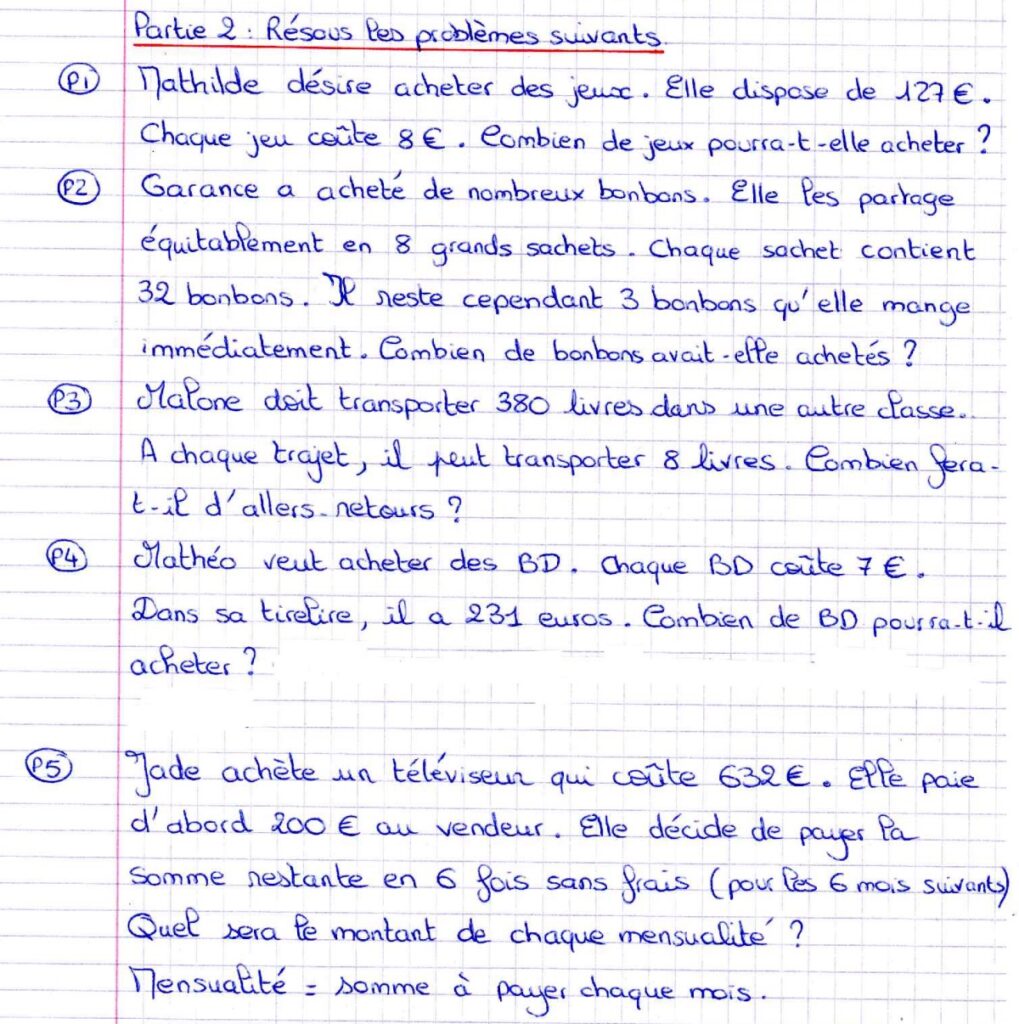 Partie 2 : Résous les problèmes suivants
P1 Mathilde désire acheter des jeux. Elle dispose de 127 €.
Chaque jeu coûte 8 €. Combien de jeux pourra-t-elle acheter ?
P2 Garance a acheté de nombreux bonbons. Elle les partage
équitablement en 8 grands sachets. Chaque sachet contient
32 bonbons. Il reste cependant 3 bonbons qu'elle mange
immédiatement. Combien de bonbons avait-elle achetés ?
P3 Malone doit transporter 380 livres dans une autre classe.
A chaque trajet, il peut transporter 8 livres. Combien fera-
t-il d'allers-retours ?
P4 Mathéo veut acheter des BD. Chaque BD coûte 7 €.
Dans sa tirelire, il a 231 euros. Combien de BD pourra-t-il
acheter ?
P5 Jade achète un téléviseur qui coûte 632 €. Elle paie
d'abord 200 € au vendeur. Elle décide de payer la
somme restante en 6 fois sans frais (pour les 6 mois suivants)
Quel sera le montant de chaque mensualité ?
Mensualité = somme à payer chaque mois.